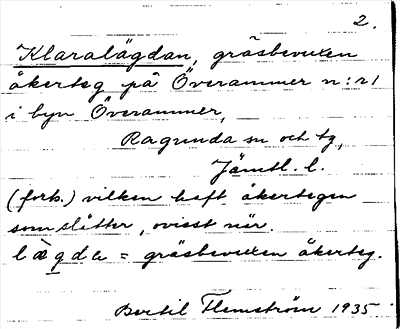 2.
Klaralägdan, gräsbevuxen
åkerteg på Överammer n:r 1
i byn Överammer,
Ragunda sn och tg,
Jämtl. l.
(forts.) vilken haft åkertegen
som slåtter, ovisst när.
lägda = gräsbevuxen åkerteg.
Bertil Flemström 1935